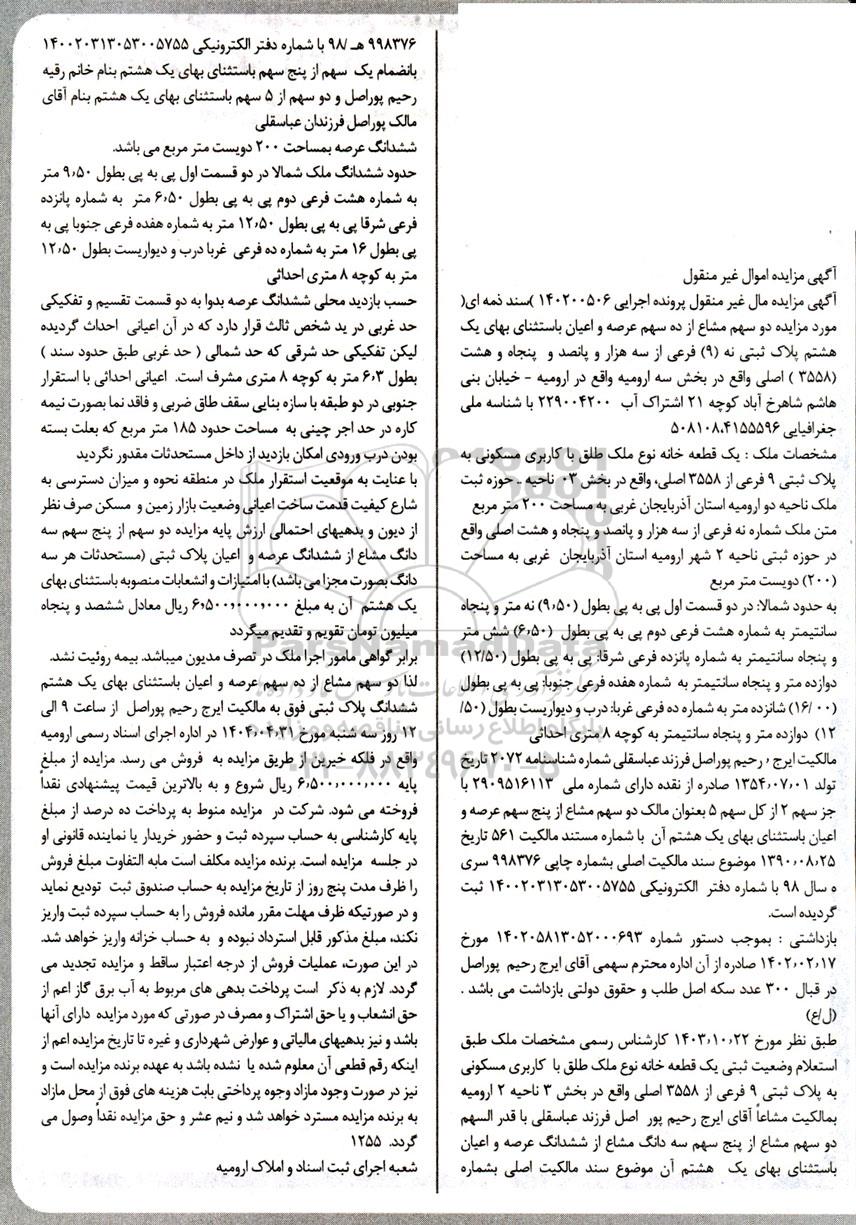 آگهی مزایده اموال غیر منقول
آگهی مزایده مال غیر منقول پرونده اجرایی ۱۴۰۲۰۰۵۰۶ )سند ذمه ای(
مورد مزایده دو سهم مشاع از ده سهم عرصه و اعیان باستثنای بهای یک
هشتم پلاک ثبتی نه (۹) فرعی از سه هزار و پانصد و پنجاه و هشت
(۳۵۵۸ ) اصلی واقع در بخش سه ارومیه واقع در ارومیه - خیابان بنی
هاشم شاهرخ آباد کوچه ۲۱ اشتراک آب ۲۲۹۰۰۴۲۰۰ با شناسه ملی
جغرافیایی ۵۰۸۱۰۸،۴۱۵۵۵۹۶
مشخصات ملک : یک قطعه خانه نوع ملک طلق با کاربری مسکونی به
پلاک ثبتی ۹ فرعی از ۳۵۵۸ اصلی، واقع در بخش ۰۳ ناحیه - حوزه ثبت
ملک ناحیه دو ارومیه استان آذربایجان غربی به مساحت ۲۰۰ متر مربع
متن ملک شماره نه فرعی از سه هزار و پانصد و پنجاه و هشت اصلی واقع
در حوزه ثبتی ناحیه ۲ شهر ارومیه استان آذربایجان غربی به مساحت
(۲۰۰) دویست متر مربع
به حدود شمالا: در دو قسمت اول پی به پی بطول (۹٫۵۰) نه متر و پنجاه
سانتیمتر به شماره هشت فرعی دوم پی به پی بطول (۶٫۵۰) شش متر
و پنجاه سانتیمتر به شماره پانزده فرعی شرقا: پی به پی بطول (۱۲/۵۰)
دوازده متر و پنجاه سانتیمتر به شماره هفده فرعی جنوبا: پی به پی بطول
(۱۶/۰۰) شانزده متر به شماره ده فرعی غربا: درب و دیواریست بطول (۵۰/
۱۲) دوازده متر و پنجاه سانتیمتر به کوچه ۸ متری احداثی
مالکیت ایرج ، رحیم پوراصل فرزند عباسقلی شماره شناسنامه ۲۰۷۲ تاریخ
تولد ۱۳۵۴،۰۷،۰۱ صادره از نقده دارای شماره ملی ۲۹۰۹۵۱۶۱۱۳ با
جز سهم ۲ از کل سهم ۵ بعنوان مالک دو سهم مشاع از پنج سهم عرصه و
اعیان باستثنای بهای یک هشتم آن با شماره مستند مالکیت ۵۶۱ تاریخ
۱۳۹۰،۰۸،۲۵ موضوع سند مالکیت اصلی بشماره چاپی ۹۹۸۳۷۶ سری
ه سال ۹۸ با شماره دفتر الکترونیکی ۱۴۰۰۲۰۳۱۳۰۵۳۰۰۵۷۵۵ ثبت
گردیده است.
بازداشتی : بموجب دستور شماره ۱۴۰۲۰۵۸۱۳۰۵۲۰۰۰۶۹۳ مورخ
۱۴۰۲،۰۲،۱۷ صادره از آن اداره محترم سهمی آقای ایرج رحیم پوراصل
در قبال ۳۰۰ عدد سکه اصل طلب و حقوق دولتی بازداشت می باشد .
(ل/ع)
طبق نظر مورخ ۱۴۰۳،۱۰،۲۲ کارشناس رسمی مشخصات ملک طبق
استعلام وضعیت ثبتی یک قطعه خانه نوع ملک طلق با کاربری مسکونی
به پلاک ثبتی ۹ فرعی از ۳۵۵۸ اصلی واقع در بخش ۳ ناحیه ۲ ارومیه
بمالکیت مشاعاً آقای ایرج رحیم پور اصل فرزند عباسقلی با قدر السهم
دو سهم مشاع از پنج سهم سه دانگ مشاع از ششدانگ عرصه و اعیان
باستثنای بهای یک هشتم آن موضوع سند مالکیت اصلی بشماره
۹۹۸۳۷۶ هـ /۹۸ با شماره دفتر الکترونیکی ۱۴۰۰۲۰۳۱۳۰۵۳۰۰۵۷۵۵
بانضمام یک سهم از پنج سهم باستثنای بهای یک هشتم بنام خانم رقیه
رحیم پوراصل و دو سهم از ۵ سهم باستثنای بهای یک هشتم بنام آقای
مالک پوراصل فرزندان عباسقلی
ششدانگ عرصه بمساحت ۲۰۰ دویست متر مربع می باشد.
حدود ششدانگ ملک شمالا در دو قسمت اول پی به پی بطول ۹٫۵۰ متر
به شماره هشت فرعی دوم پی به پی بطول ۶٫۵۰ متر به شماره پانزده
فرعی شرقا پی به پی بطول ۱۲٫۵۰ متر به شماره هفده فرعی جنوبا پی به
پی بطول ۱۶ متر به شماره ده فرعی غربا درب و دیواریست بطول ۱۲٫۵۰
متر به کوچه ۸ متری احداثی
حسب بازدید محلی ششدانگ عرصه بدوا به دو قسمت تقسیم و تفکیکی
حد غربی در ید شخص ثالث قرار دارد که در آن اعیانی احداث گردیده
لیکن تفکیکی حد شرقی که حد شمالی ( حد غربی طبق حدود سند )
بطول ۶٫۳ متر به کوچه ۸ متری مشرف است. اعیانی احداثی با استقرار
جنوبی در دو طبقه با سازه بنایی سقف طاق ضربی و فاقد نما بصورت نیمه
کاره در حد اجر چینی به مساحت حدود ۱۸۵ متر مربع که بعلت بسته
بودن درب ورودی امکان بازدید از داخل مستحدثات مقدور نگردید
با عنایت به موقعیت استقرار ملک در منطقه نحوه و میزان دسترسی به
شارع کیفیت قدمت ساخت اعیانی وضعیت بازار زمین و مسکن صرف نظر
از دیون و بدهیهای احتمالی ارزش پایه مزایده دو سهم از پنج سهم سه
دانگ مشاع از ششدانگ عرصه و اعیان پلاک ثبتی (مستحدثات هر سه
دانگ بصورت مجزا می باشد) با امتیازات و انشعابات منصوبه باستثنای بهای
یک هشتم آن به مبلغ ۶٫۵۰۰٫۰۰۰٫۰۰۰ ریال معادل ششصد و پنجاه
میلیون تومان تقویم و تقدیم میگردد
برابر گواهی مامور اجرا ملک در تصرف مدیون میباشد. بیمه روئیت نشد.
لذا دو سهم مشاع از ده سهم عرصه و اعیان باستثنای بهای یک هشتم
ششدانگ پلاک ثبتی فوق به مالکیت ایرج رحیم پوراصل از ساعت ۹ الی
۱۲ روز سه شنبه مورخ ۱۴۰۴،۰۴،۳۱ در اداره اجرای اسناد رسمی ارومیه
واقع در فلکه خیبرین از طریق مزایده به فروش می رسد. مزایده از مبلغ
پایه ۶٫۵۰۰٫۰۰۰٫۰۰۰ ریال شروع و به بالاترین قیمت پیشنهادی نقداً
فروخته می شود. شرکت در مزایده منوط به پرداخت ده درصد از مبلغ
پایه کارشناسی به حساب سپرده ثبت و حضور خریدار یا نماینده قانونی او
در جلسه مزایده است. برنده مزایده مکلف است مابه التفاوت مبلغ فروش
را ظرف مدت پنج روز از تاریخ مزایده به حساب صندوق ثبت تودیع نماید
و در صورتیکه ظرف مهلت مقرر مانده فروش را به حساب سپرده ثبت واریز
نکند، مبلغ مذکور قابل استرداد نبوده و به حساب خزانه واریز خواهد شد.
در این صورت، عملیات فروش از درجه اعتبار ساقط و مزایده تجدید می
گردد. لازم به ذکر است پرداخت بدهی های مربوط به آب برق گاز اعم از
حق انشعاب و یا حق اشتراک و مصرف در صورتی که مورد مزایده دارای آنها
باشد و نیز بدهیهای مالیاتی و عوارض شهرداری و غیره تا تاریخ مزایده اعم از
اینکه رقم قطعی آن معلوم شده یا نشده باشد به عهده برنده مزایده است و
نیز در صورت وجود مازاد وجوه پرداختی بابت هزینه های فوق از محل مازاد
به برنده مزایده مسترد خواهد شد و نیم عشر و حق مزایده نقداً وصول می
گردد. ۱۲۵۵
شعبه اجرای ثبت اسناد و املاک ارومیه
ParsNamadData
پایگاه اطلاع رسانی مناقصه و مزایده
۰۲۱-۸۸۳۴۹۶۷۰-۵